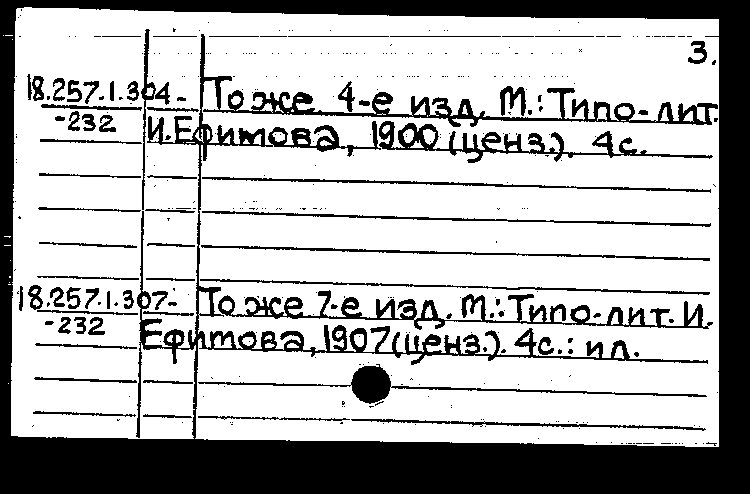 3.
18.257.1.304- То же 4-е изд. М.: Типо-лит.
-232 И.Ефимова, 1900 (ценз.). 4с.
18.257.1.307- То же 7-е изд. М.: Типо-лит. И.
-232 Ефимова, 1907 (ценз.). 4с.: ил.